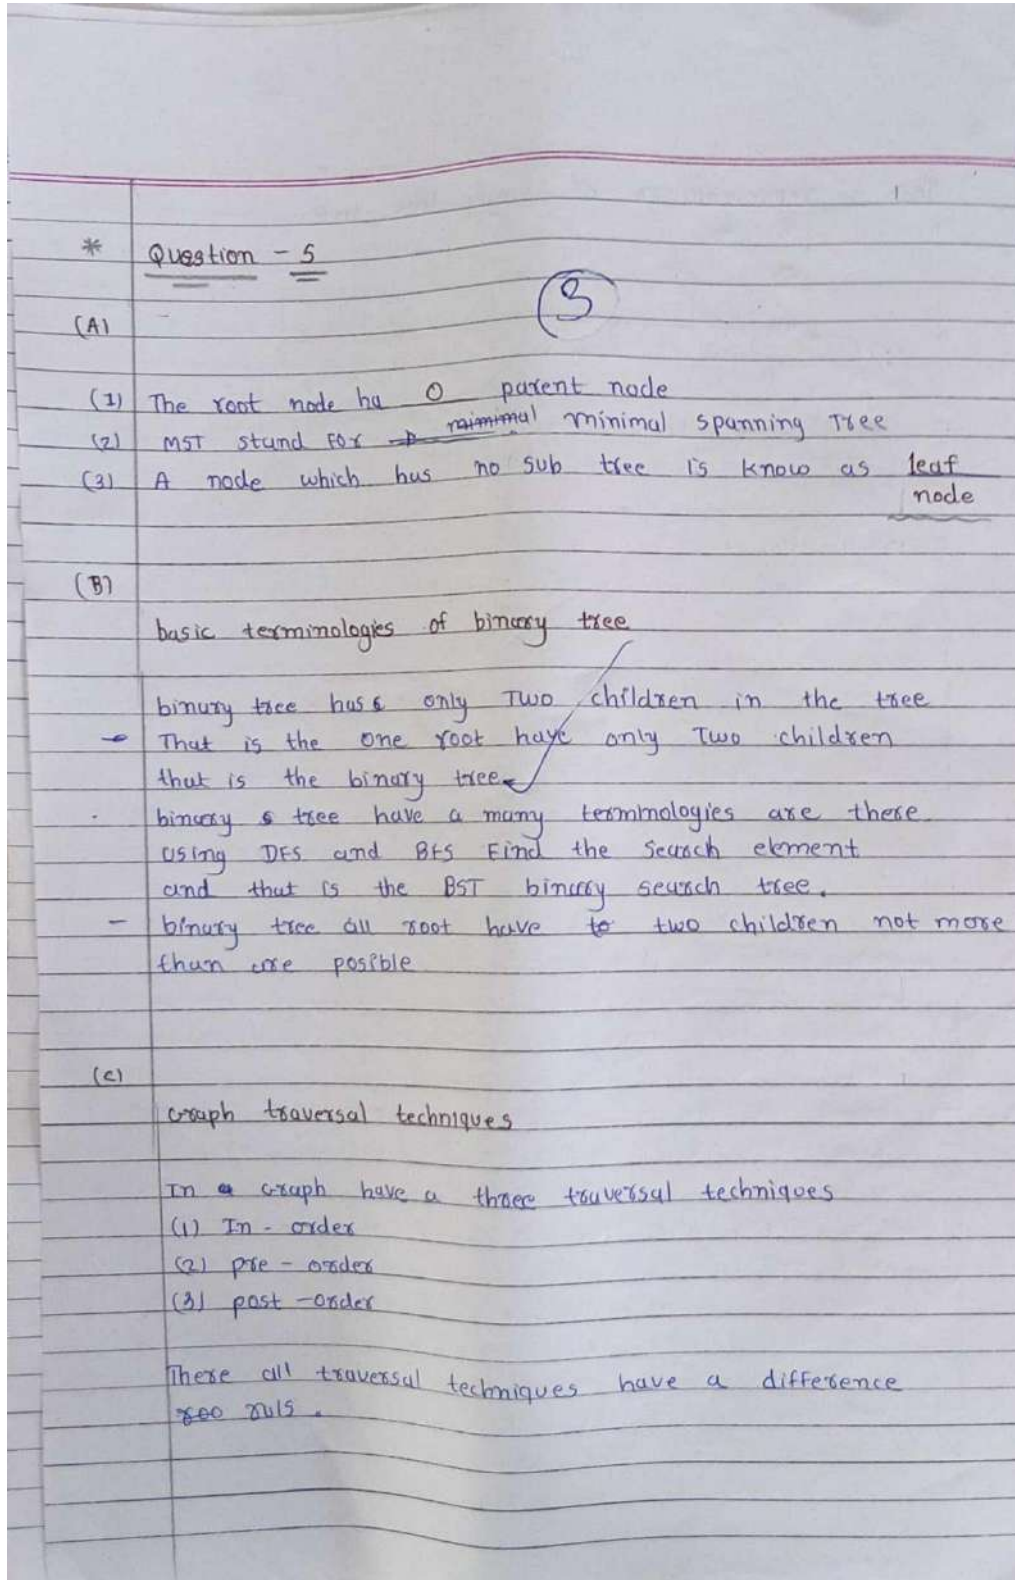 * Question - 5
3
(A)
(1) The root node ha 0 parent node
(2) MST stand For minimal minimal spanning Tree
(3) A node which has no sub tree is know as leaf
node
(B)
basic terminologies of binary tree
binary tree has only Two children in the tree
- That is the one root have only Two children
that is the binary tree
binary tree have a many terminologies are there
using DFS and BFS Find the search element
and that is the BST binary search tree.
- binary tree all root have to two children not more
than are posible
(C)
Graph traversal techniques
In a Graph have a three traversal techniques
(1) In - order
(2) pre - order
(3) post - order
There all traversal techniques have a difference
ruls.